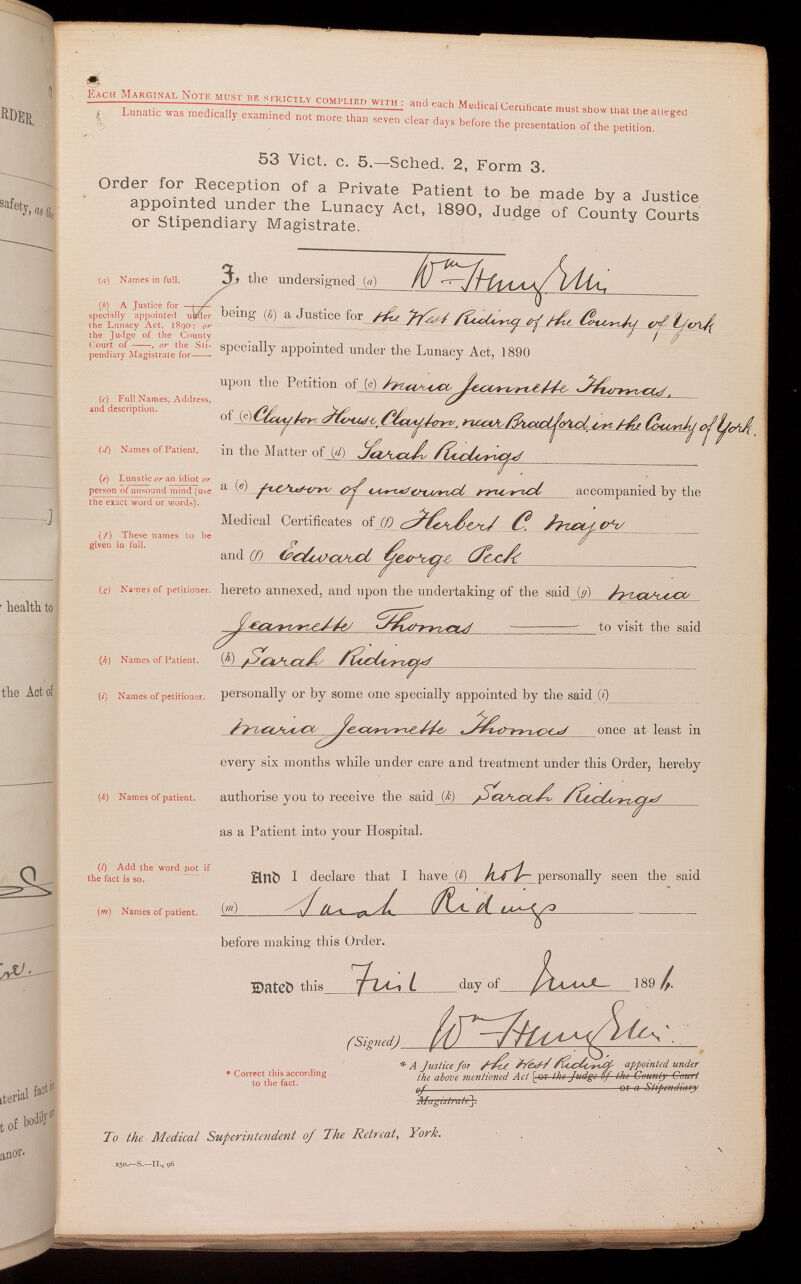 RDER.
safety, as the
]
health to
the Act of
terial fact in
t of bodily or
anor.
EACH MARGINAL NOTE MUST BE STRICTLY COMPLIED WITH: and each Medical Certificate must show that the alleged
Lunatic was medically examined not more than seven clear days before the presentation of the petition.
53 Vict. c. 5.—Sched. 2, Form 3.
Order for Reception of a Private Patient to be made by a Justice
appointed under the Lunacy Act, 1890, Judge of County Courts
or Stipendiary Magistrate.
(a) Names in full.
I, the undersigned (a) Wm Henry Ellis
(b) A Justice for ——
specially appointed under
the Lunacy Act, 1890; or
the Judge of the County
Court of ——, or the Sti-
pendiary Magistrate for ——
being (b) a Justice for the West Riding of the County of York
specially appointed under the Lunacy Act, 1890
(c) Full Names, Address,
and description.
upon the Petition of (c) Maria Jeannette Thomas,
of (c) Clayton House, Clayton, near Bradford, in the County of York.
(d) Names of Patient.
in the Matter of (d) Sarah Ridings
(e) Lunatic or an idiot or
person of unsound mind (use
the exact word or words).
a (e) person of unsound mind accompanied by the
(f) These names to be
given in full.
Medical Certificates of (f) Herbert C. Major
and (f) Edward George Peck
(g) Names of petitioner.
hereto annexed, and upon the undertaking of the said (g) Maria
Jeannette Thomas —— to visit the said
(h) Names of Patient.
(h) Sarah Ridings
(i) Names of petitioner.
personally or by some one specially appointed by the said (i)
Maria Jeannette Thomas once at least in
every six months while under care and treatment under this Order, hereby
(k) Names of patient.
authorise you to receive the said (k) Sarah Ridings
as a Patient into your Hospital.
(l) Add the word not if
the fact is so.
And I declare that I have (l) not personally seen the said
(m) Names of patient.
(m) Sarah Ridings
before making this Order.
Dated this First day of June 1896.
(Signed) Wm Henry Ellis.
* Correct this according
to the fact.
* A Justice for the West Riding appointed under
the above mentioned Act [or the Judge of the County Court
of or a Stipendiary
Magistrate].
To the Medical Superintendent of The Retreat, York.
250.—S.—II., 96